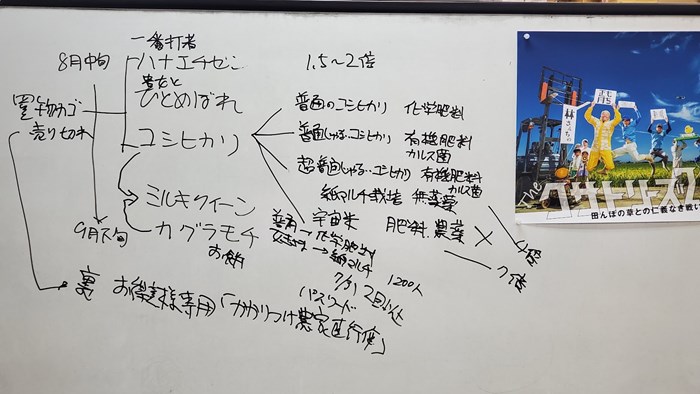 一番打者
8月中旬
ハナエチゼン
1.5〜2倍
貴女と
ひとめぼれ
買物カゴ
売り切れ
コシヒカリ
普通のコシヒカリ 化学肥料
普通じゃない コシヒカリ 有機肥料
カルス菌
超普通じゃない コシヒカリ 有機肥料
カルス菌
紙マルチ栽培 無農薬
ミルキクイーン
カグラモチ
お餅
9月下旬
宇宙米 肥料 農薬 ×
普通 → 化学肥料
→ 紙マルチ
7/31 2回以上
1200人
パスワード
4倍
7倍
裏 お得意様専用「かかりつけ農家直行便」
The
田んぼの草との仁義なき戦い